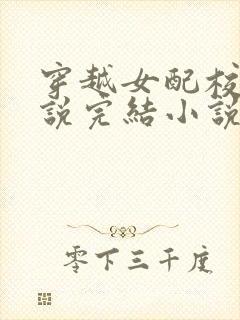 穿越女配校
說完結小說
零下三千度